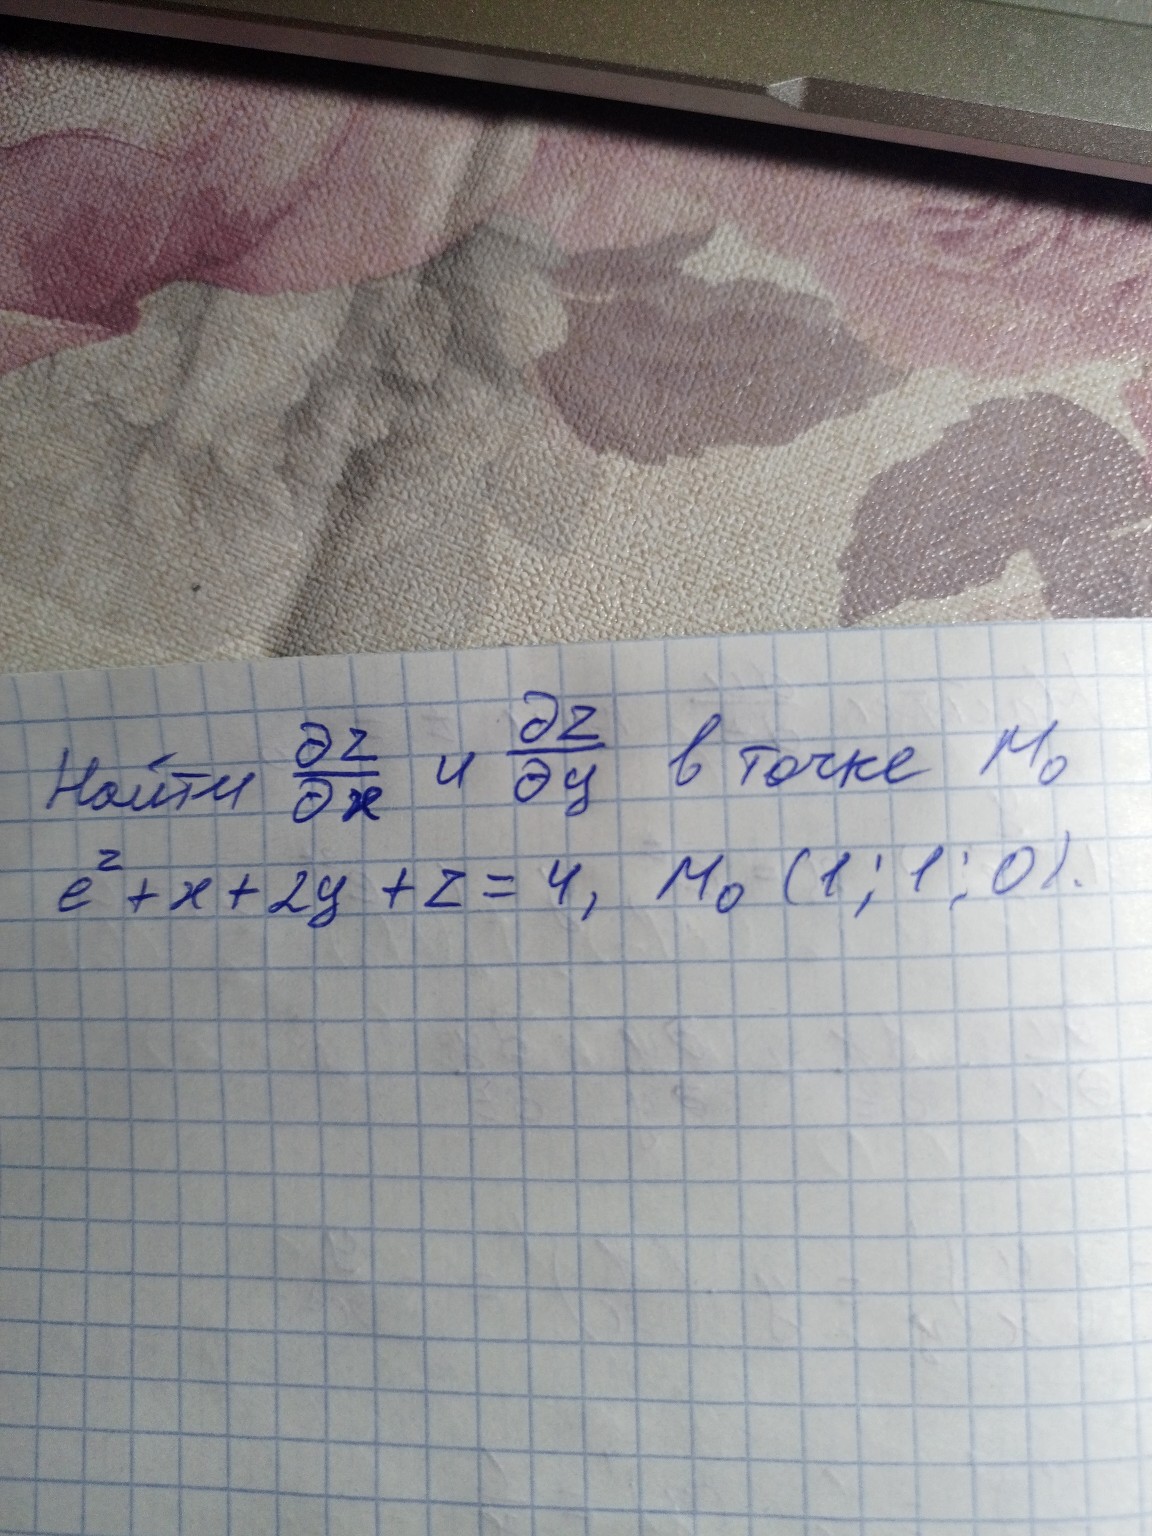 Найти ∂z/∂x и ∂z/∂y в точке M₀
e^z + x + 2y + z = 4, M₀ (1; 1; 0).